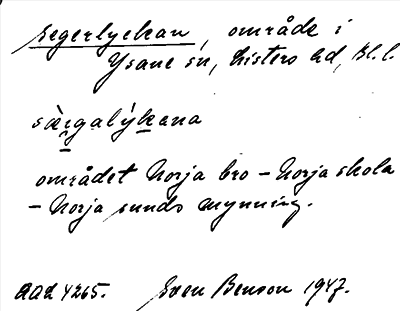 Segerlyckan, område i
Ysane sn, Listers hd, Bl. l.
sæ̀rgalýkana
området Norja bro – Norja skola
– Norja sunds mynning.
AAA 4265. Sven Benson 1947.